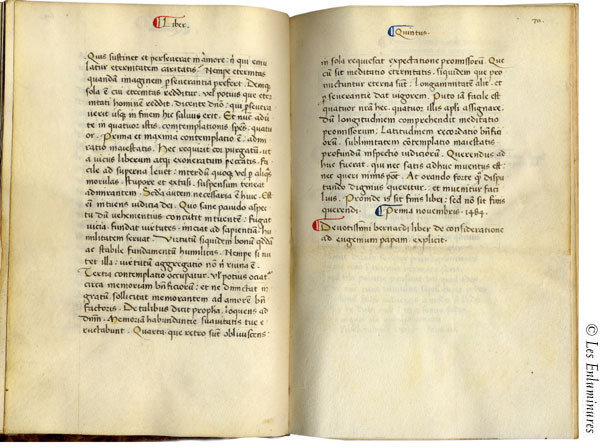 Liber.
Quis sustinet et perseverat in amore: nͥ qui emu
latur eternitatem caritatis? Nempe eternitatis
quandā imaginem perseverantia prefert. Deniqꝫ
sola ē cui eternitas redditur. vel potius que eter
nitati hominē reddit. dicente dno: qui persevera
verit usqꝫ in finem hic salvus erit. Et nūc adver
te in quatuor istis contemplationis spēs quatu
or. Prima et maxima contemplatio ē. admi
ratio maiestatis. Hec requirit cor purgatū. ut
a viciis liberum atqꝫ exoneratum peccatis. fa
cile ad superna levet: interdū quoqꝫ vel p aliqͣs
morulas. stupore et extasi. suspensum teneat
admirantem. Seda autem necessaria ē huic. Est
em intuens iudicia dei. Quo sane pavido aspec
tu dum vehementius concutit intuentē: fugat
vicia. fundat virtutes. iniciat ad sapientiā. hu
militatem servat. Virtutū siquidem bonū qdā
ac stabile fundamentū humilitas. Nempe si nu
tet illa: virtutū aggregatio nō nͥ ruina ē.
Tertia contemplatio occupatur. vl potius ociat
circa memoriam bnficiorū: et ne dimictat in
gratū. sollicitat memorantem ad amorē bn
factoris. De talibus dicit propha. loquens ad
dnm. Memoriā habundantie suavitatis tue e
ructabunt. Quarta. que retro sūt obliviscens.
Quintus.
70.
in sola requiescat expectatione promissorū. Que
cū sit meditatio eternitatis. siquidem que pro
mictuntur eterna sūt: longanimitatē alit. et
perseverantie dat vigorem. Puto iā facile est
quatuor nrām hec. quatuor illis apli assignare.
Dū longitudinem comprehendit meditatio
promissorum. Latitudinem recordatio bnfici
orū. sublimitatem cōtemplatio maiestatis
profundū inspectio iudiciorū. Querendus ad
huc fuerat. qui nec satis adhuc inventus est:
nec queri nimis pot. At orando forte qͣ dispu
tando dignius queritur. et invenitur faci
lius. Proinde is sit finis libri: sed nō sit finis
querendi. Prima novembris. 1484.
Devotissimi bernardi liber de consideratione
ad eugenium papam. explicit.
© Les Enluminures